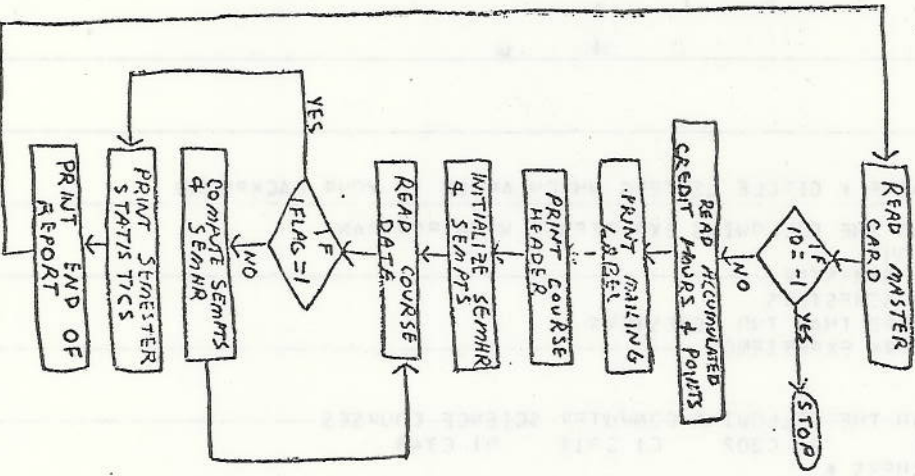 READ MASTER
CARD
IF
ID=1
YES
STOP
NO
READ ACCUMULATED
CREDIT HOURS & POINTS
PRINT MAILING
LABEL
PRINT COURSE
HEADER
INITIALIZE SEMHR
& SEMPTS
READ COURSE
DATA
IF
IFLAG=1
YES
NO
COMPUTE SEMPTS
& SEMHR
PRINT SEMESTER
STATISTICS
PRINT END OF
REPORT